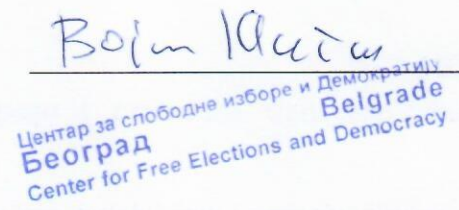 Bojan
Центар за слободне изборе и Демократију
Београд Belgrade
Center for Free Elections and Democracy